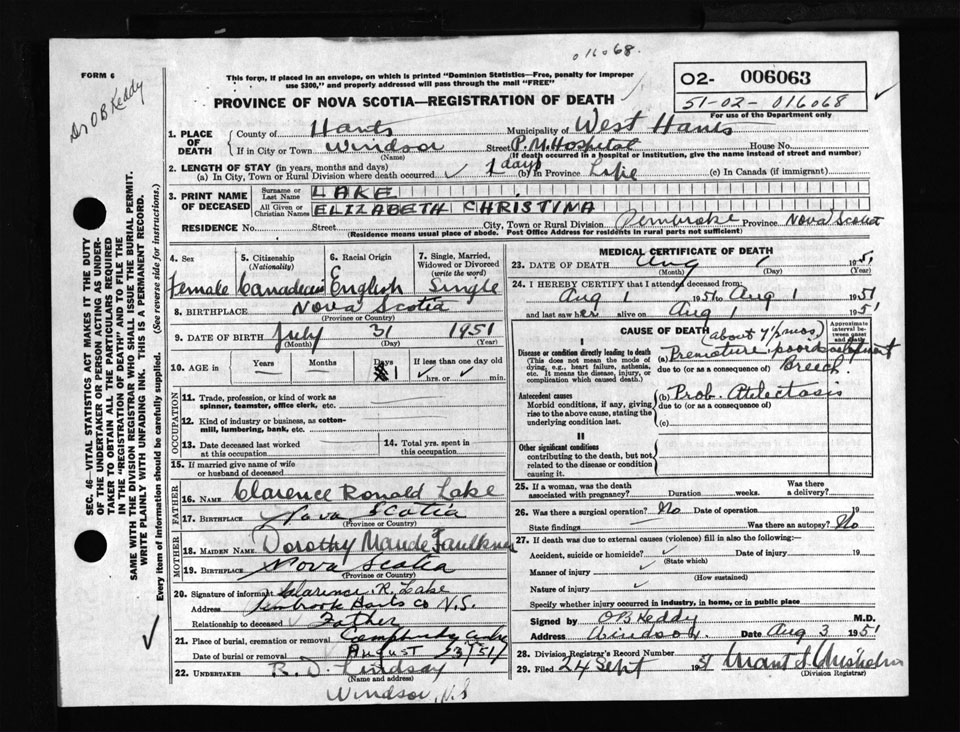 016068.
FORM 6
Dr O B Keddy
This form, if placed in an envelope, on which is printed "Dominion Statistics—Free, penalty for improper
use $300," and properly addressed will pass through the mail "FREE"
O2- 006063
51-02-016068
For use of the Department only
PROVINCE OF NOVA SCOTIA—REGISTRATION OF DEATH
1. PLACE OF DEATH
County of Hants Municipality of West Hants
If in City or Town Windsor Street P.M. Hospital House No.
(Name) (If death occurred in a hospital or institution, give the name instead of street and number)
2. LENGTH OF STAY (in years, months and days)
(a) In City, Town or Rural Division where death occurred 1 day (b) in Province Life (c) In Canada (if immigrant)
3. PRINT NAME OF DECEASED
Surname or Last Name LAKE
All Given or Christian Names ELIZABETH CHRISTINA
RESIDENCE No. Street City, Town or Rural Division Pembroke Province Nova Scotia
(Residence means usual place of abode. Post Office Address for residents in rural parts not sufficient)
SEC. 46—VITAL STATISTICS ACT MAKES IT THE DUTY
OF THE UNDERTAKER OR PERSON ACTING AS UNDER-
TAKER TO OBTAIN ALL THE PARTICULARS REQUIRED
IN THE "REGISTRATION OF DEATH" AND TO FILE THE
SAME WITH THE DIVISION REGISTRAR WHO SHALL ISSUE THE BURIAL PERMIT.
WRITE PLAINLY WITH UNFADING INK. THIS IS A PERMANENT RECORD.
Every item of information should be carefully supplied. (See reverse side for instructions.)
4. Sex Female
5. Citizenship (Nationality) Canadian
6. Racial Origin English
7. Single, Married, Widowed or Divorced (write the word) Single
8. BIRTHPLACE Nova Scotia
(Province or Country)
9. DATE OF BIRTH July 31 1951
(Month) (Day) (Year)
10. AGE in Years Months Days 1 If less than one day old
hrs. or min.
OCCUPATION
11. Trade, profession, or kind of work as
spinner, teamster, office clerk, etc.
12. Kind of industry or business, as cotton-
mill, lumbering, bank, etc.
13. Date deceased last worked
at this occupation
14. Total yrs. spent in
this occupation
15. If married give name of wife
or husband of deceased
FATHER
16. NAME Clarence Ronald Lake
17. BIRTHPLACE Nova Scotia
(Province or Country)
MOTHER
18. MAIDEN NAME Dorothy Maude Faulkner
19. BIRTHPLACE Nova Scotia
(Province or Country)
20. Signature of informant Clarence R. Lake
Address Pembrook Hants Co N.S.
Relationship to deceased Father
21. Place of burial, cremation or removal
Date of burial or removal August 3/51
22. UNDERTAKER R. D. Lindsay
(Name and address)
Windsor, N.S
MEDICAL CERTIFICATE OF DEATH
23. DATE OF DEATH Aug 1 1951
(Month) (Day) (Year)
24. I HEREBY CERTIFY that I attended deceased from
Aug 1 1951 to Aug 1 1951
and last saw her alive on Aug 1 1951
CAUSE OF DEATH (about 7½ mos)
Approximate interval between onset and death
I
Disease or condition directly leading to death
(This does not mean the mode of
dying, e.g., heart failure, asthenia,
etc. It means the disease, injury, or
complication which caused death.)
(a) Premature, poor development
due to (or as a consequence of) Breech
Antecedent causes
Morbid conditions, if any, giving
rise to the above cause, stating the
underlying condition last.
(b) Prob. Atelectasis
due to (or as a consequence of)
(c)
II
Other significant conditions
contributing to the death, but not
related to the disease or condition
causing it.
25. If a woman, was the death
associated with pregnancy? Duration weeks. Was there
a delivery?
26. Was there a surgical operation? No Date of operation 19
State findings Was there an autopsy? No
27. If death was due to external causes (violence) fill in also the following:—
Accident, suicide or homicide? Date of injury 19
(State which)
Manner of injury
(How sustained)
Nature of injury
Specify whether injury occurred in industry, in home, or in public place
Signed by OB Keddy M.D.
Address Windsor Date Aug 3 1951
28. Division Registrar's Record Number
29. Filed 24 Sept 1951
(Division Registrar)